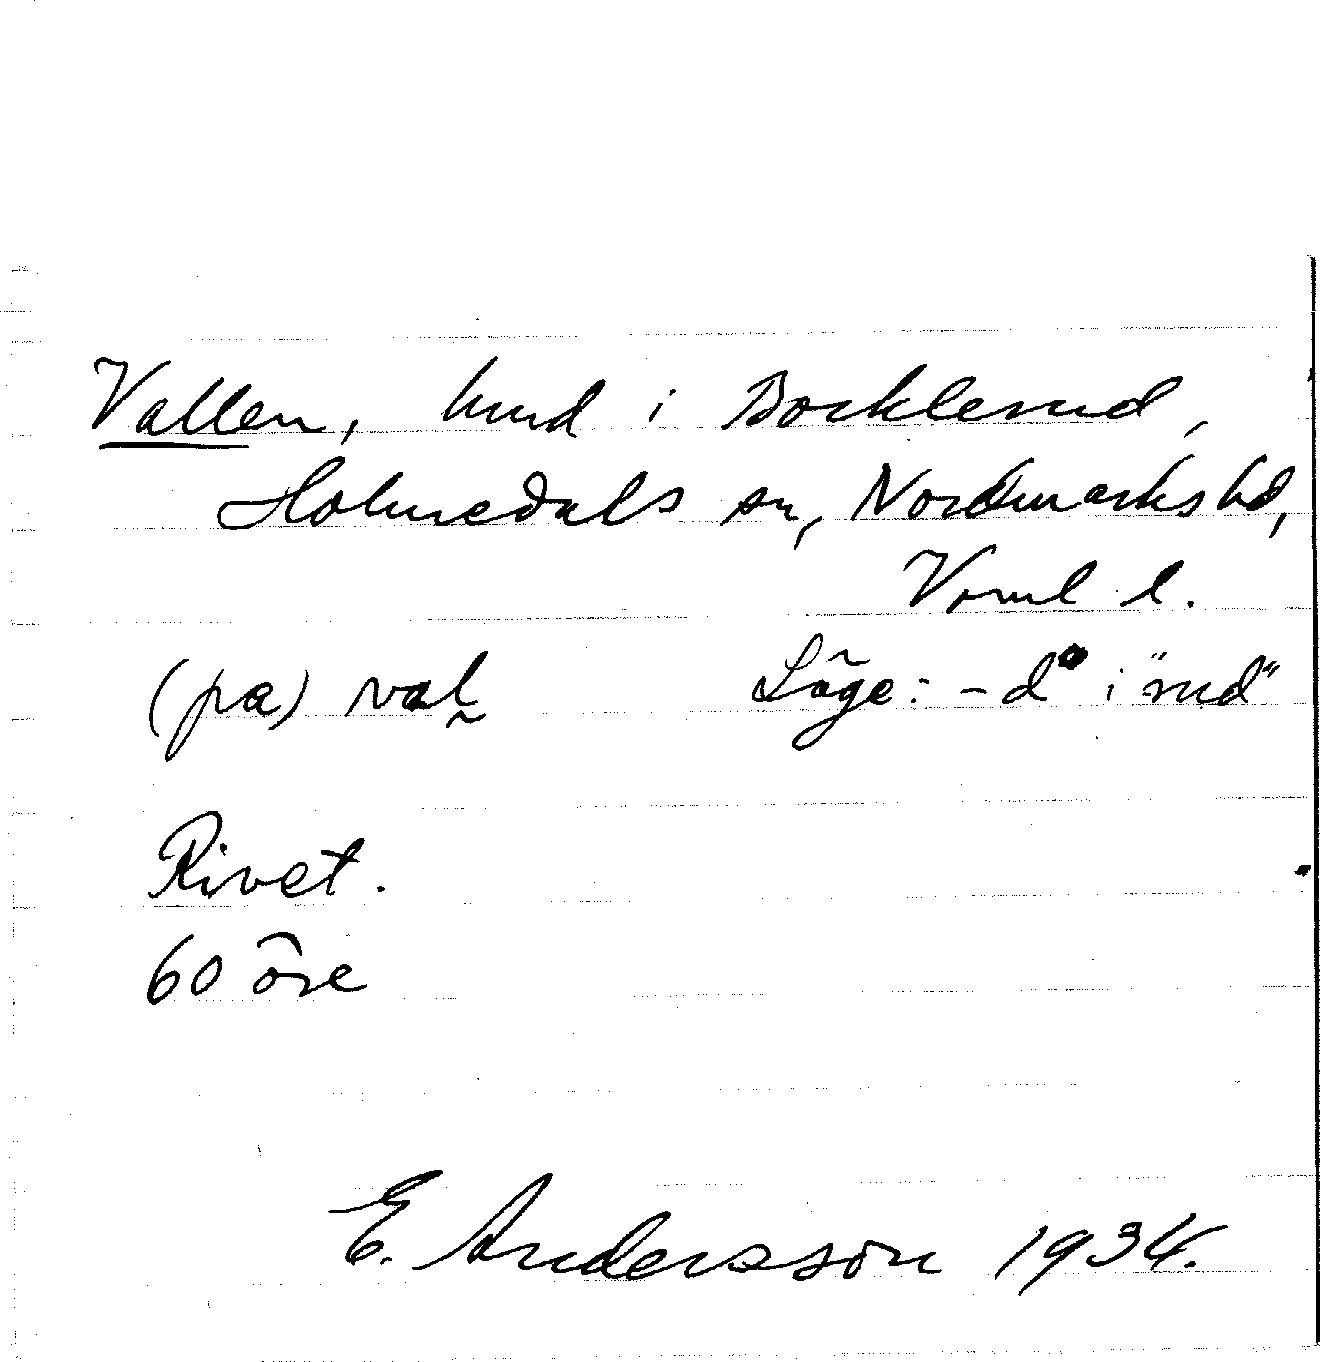 Vallen, hmd i Bocklerud,
Holmedals sn, Nordmarks hd,
Vrml l.
(pa) val Läge: - d° i "rud"
Rivet.
60 öre
E. Andersson 1934.